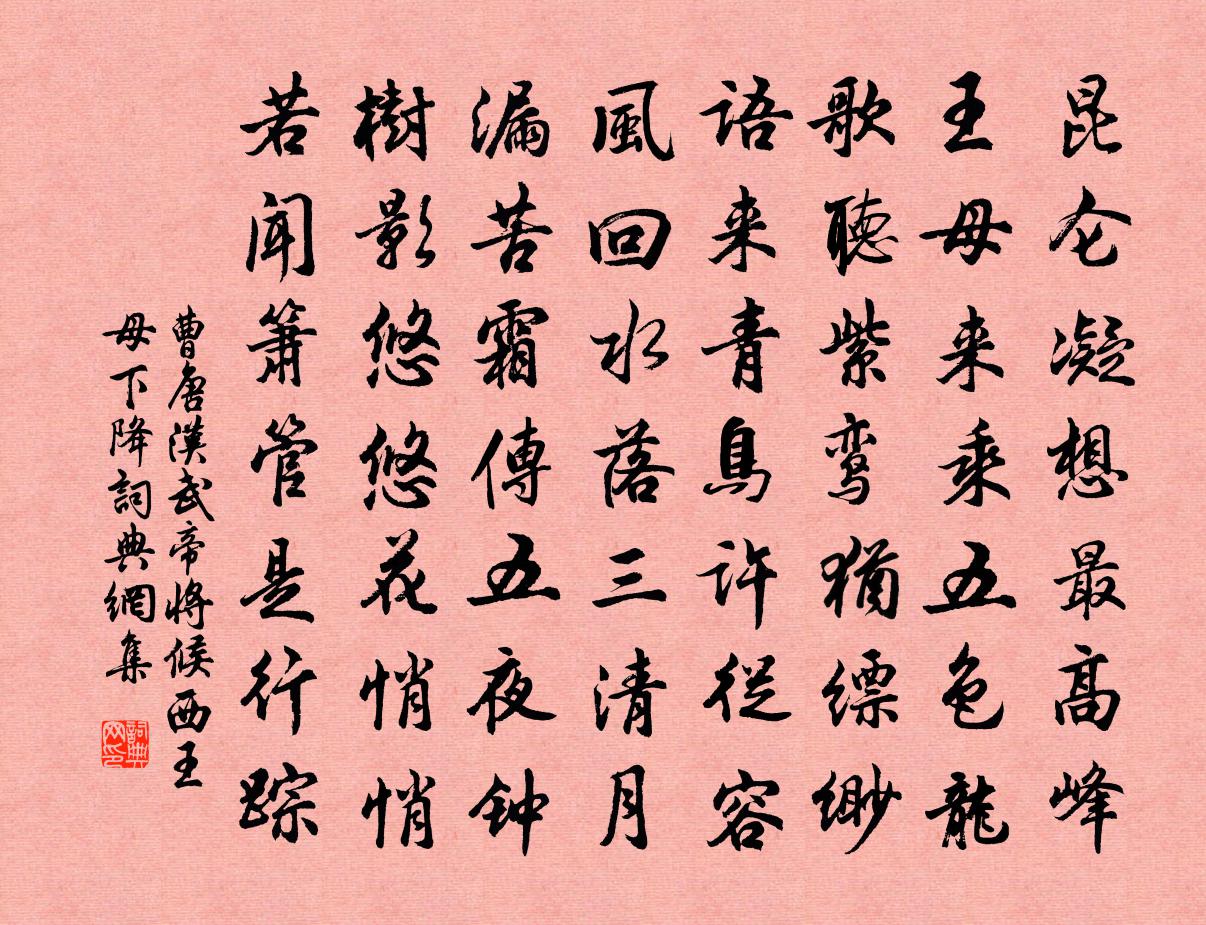 昆仑凝想最高峰
王母来乘五色龍
歌聽紫鸾猶缥缈
语来青鳥许從容
風回水落三清月
漏苦霜傳五夜钟
樹影悠悠花悄悄
若闻簫管是行踪
曹唐漢武帝將候西王
母下降詞典網集
詞典网印